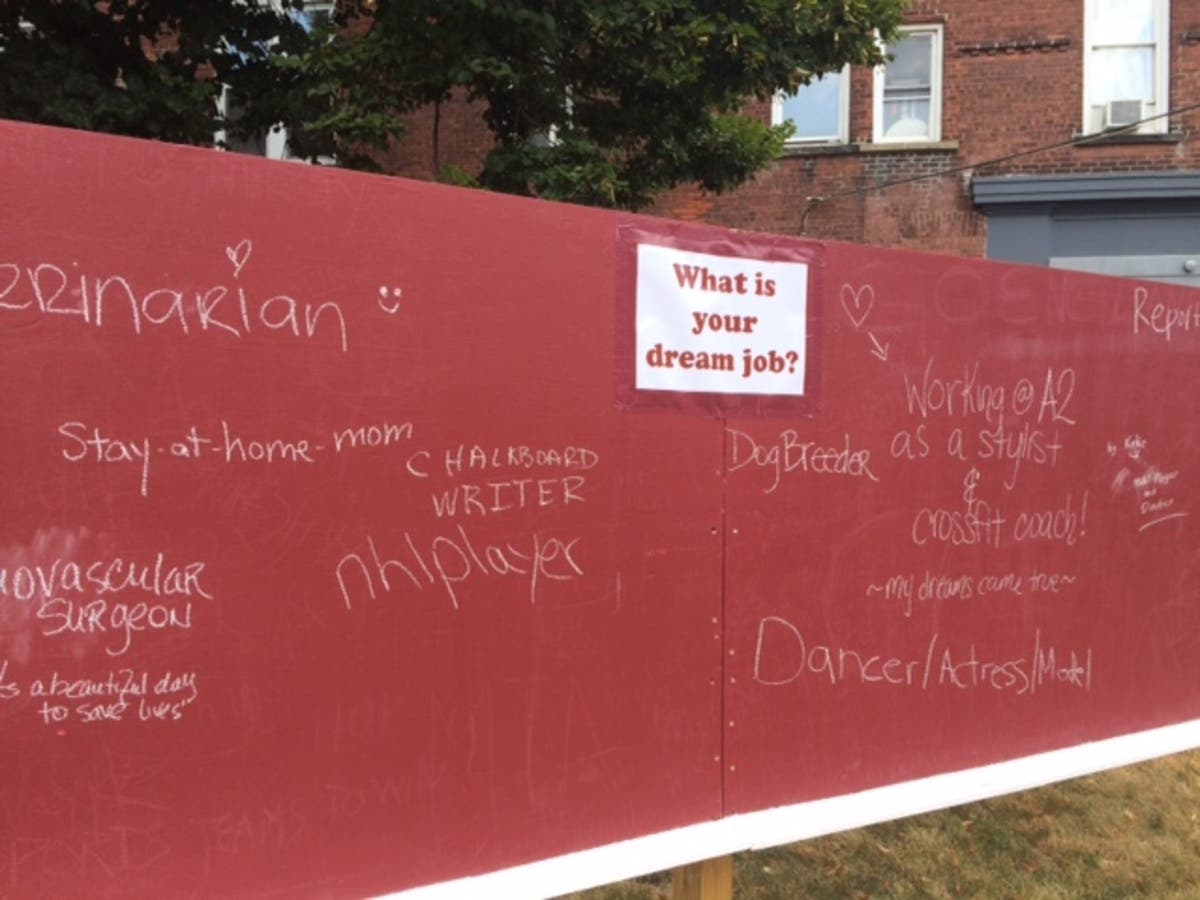 What is
your
dream job?
Stay-at-home-mom
CHALKBOARD
WRITER
nhlplayer
SURGEON
a beautiful day
to save lives"
DogBreeder
Working @ A2
as a stylist
&
crossfit coach!
~my dreams came true~
Dancer/Actress/Model